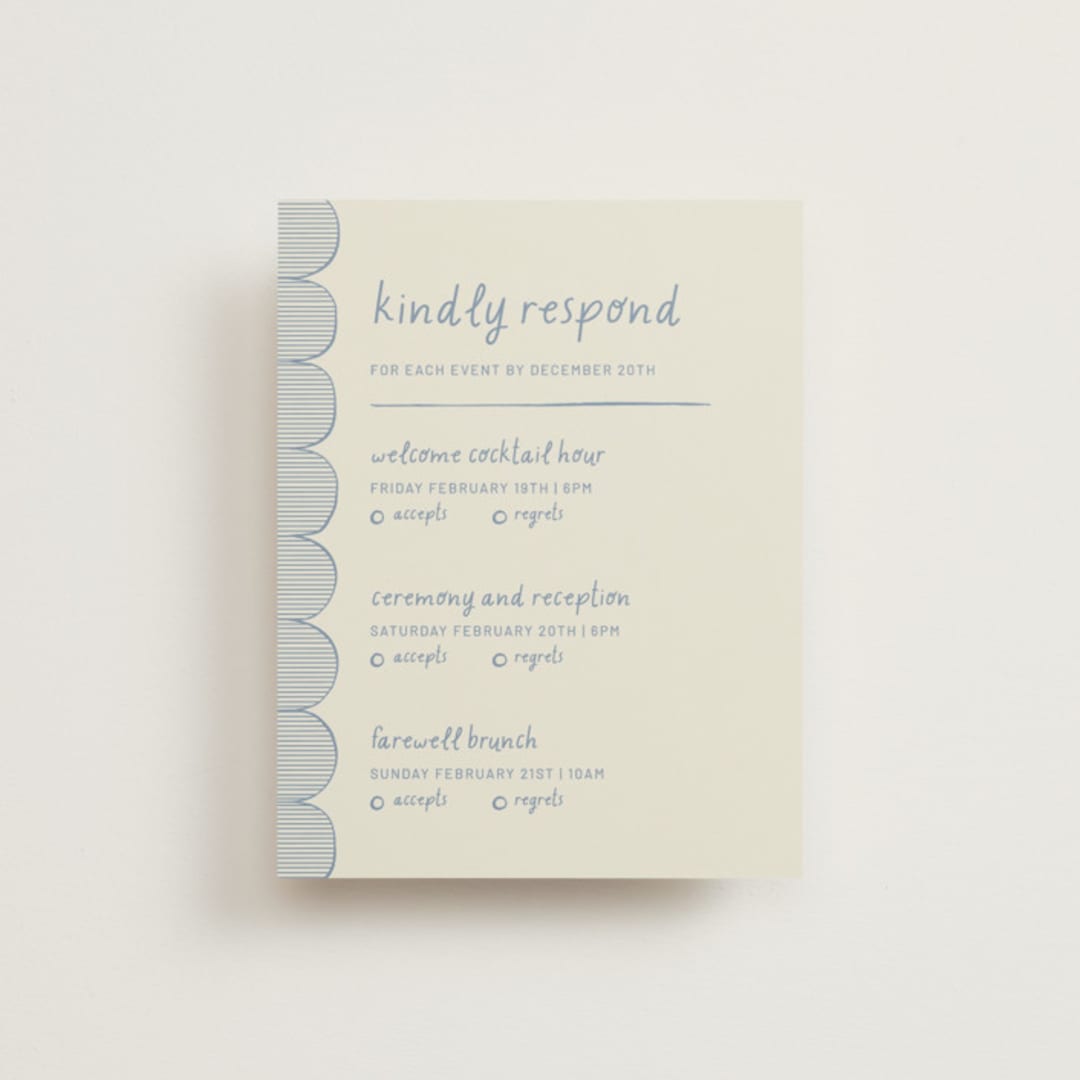 kindly respond
FOR EACH EVENT BY DECEMBER 20TH
welcome cocktail hour
FRIDAY FEBRUARY 19TH | 6PM
accepts regrets
ceremony and reception
SATURDAY FEBRUARY 20TH | 6PM
accepts regrets
farewell brunch
SUNDAY FEBRUARY 21ST | 10AM
accepts regrets